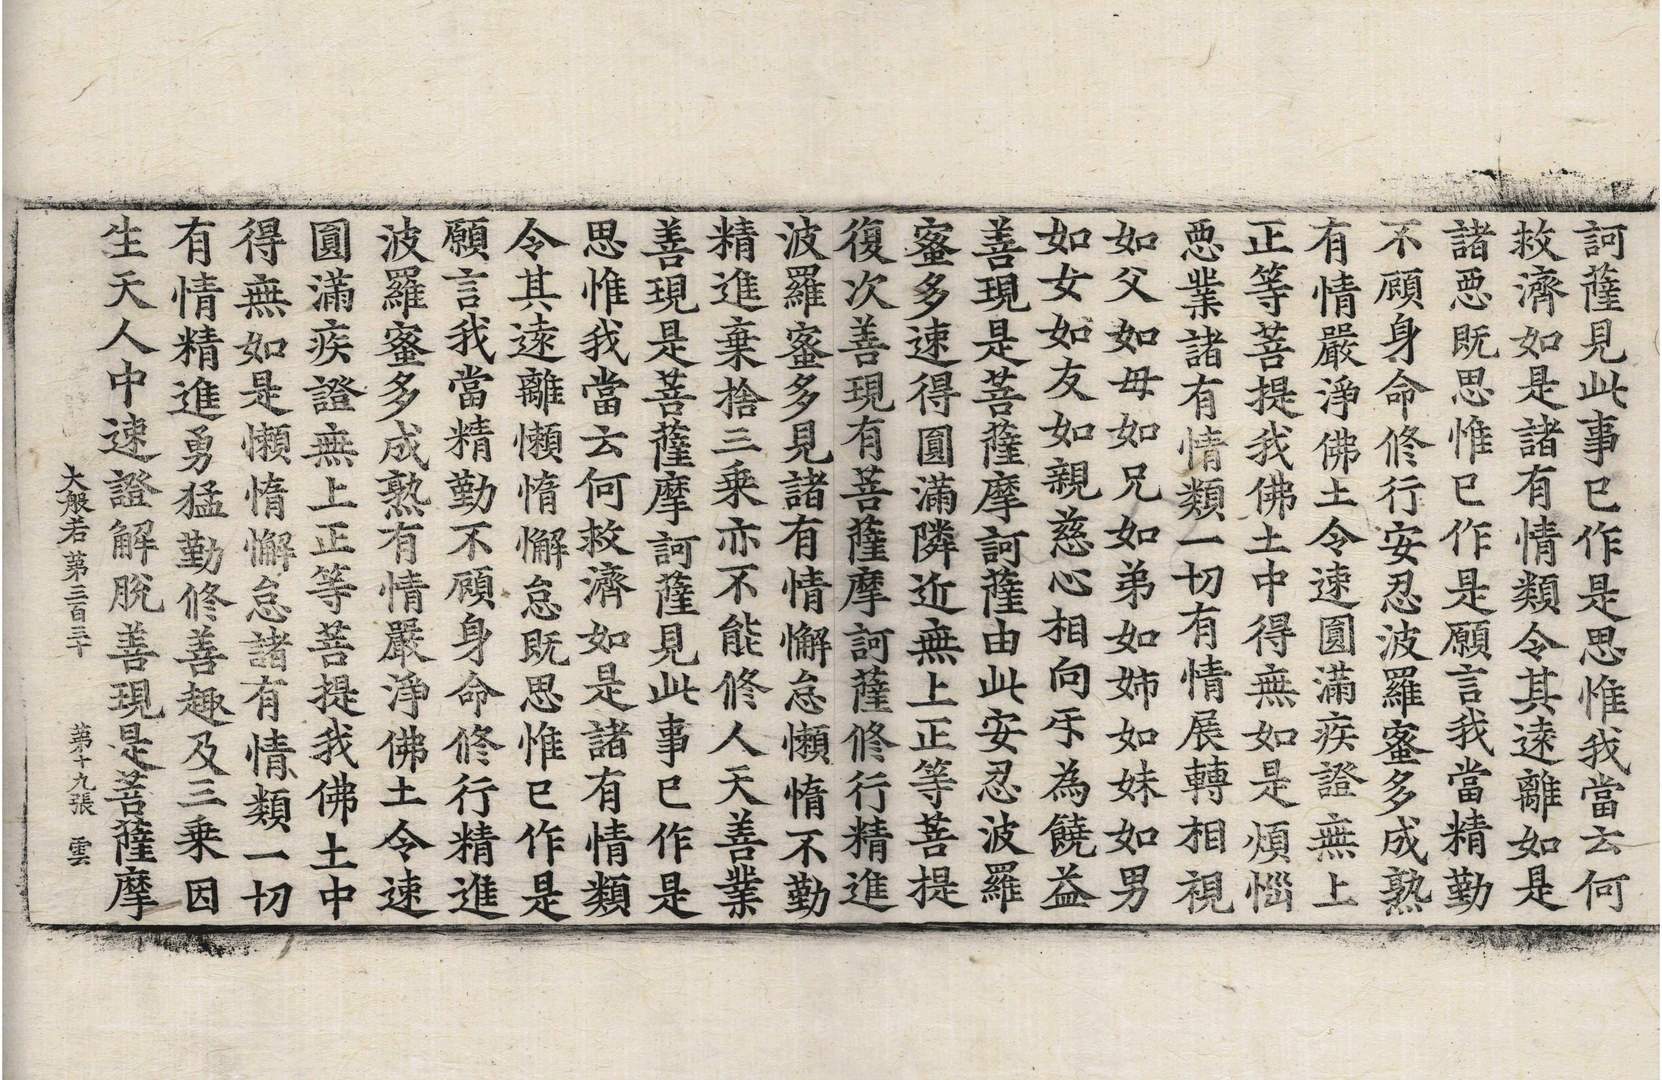 訶薩見此事已作是思惟我當云何
救濟如是諸有情類令其遠離如是
諸惡既思惟已作是願言我當精勤
不顧身命修行安忍波羅蜜多成熟
有情嚴淨佛土令速圓滿疾證無上
正等菩提我佛土中得無如是煩惱
惡業諸有情類一切有情展轉相視
如父如母如兄如弟如姉如妹如男
如女如友如親慈心相向㸦為饒益
善現是菩薩摩訶薩由此安忍波羅
蜜多速得圓滿隣近無上正等菩提
復次善現有菩薩摩訶薩修行精進
波羅蜜多見諸有情懈怠懶惰不勤
精進棄捨三乘亦不能修人天善業
善現是菩薩摩訶薩見此事已作是
思惟我當云何救濟如是諸有情類
令其遠離懶惰懈怠既思惟已作是
願言我當精勤不顧身命修行精進
波羅蜜多成熟有情嚴淨佛土令速
圓滿疾證無上正等菩提我佛土中
得無如是懶惰懈怠諸有情類一切
有情精進勇猛勤修善趣及三乘因
生天人中速證解脫善現是菩薩摩
大般若第三百三十 第十九張 雲